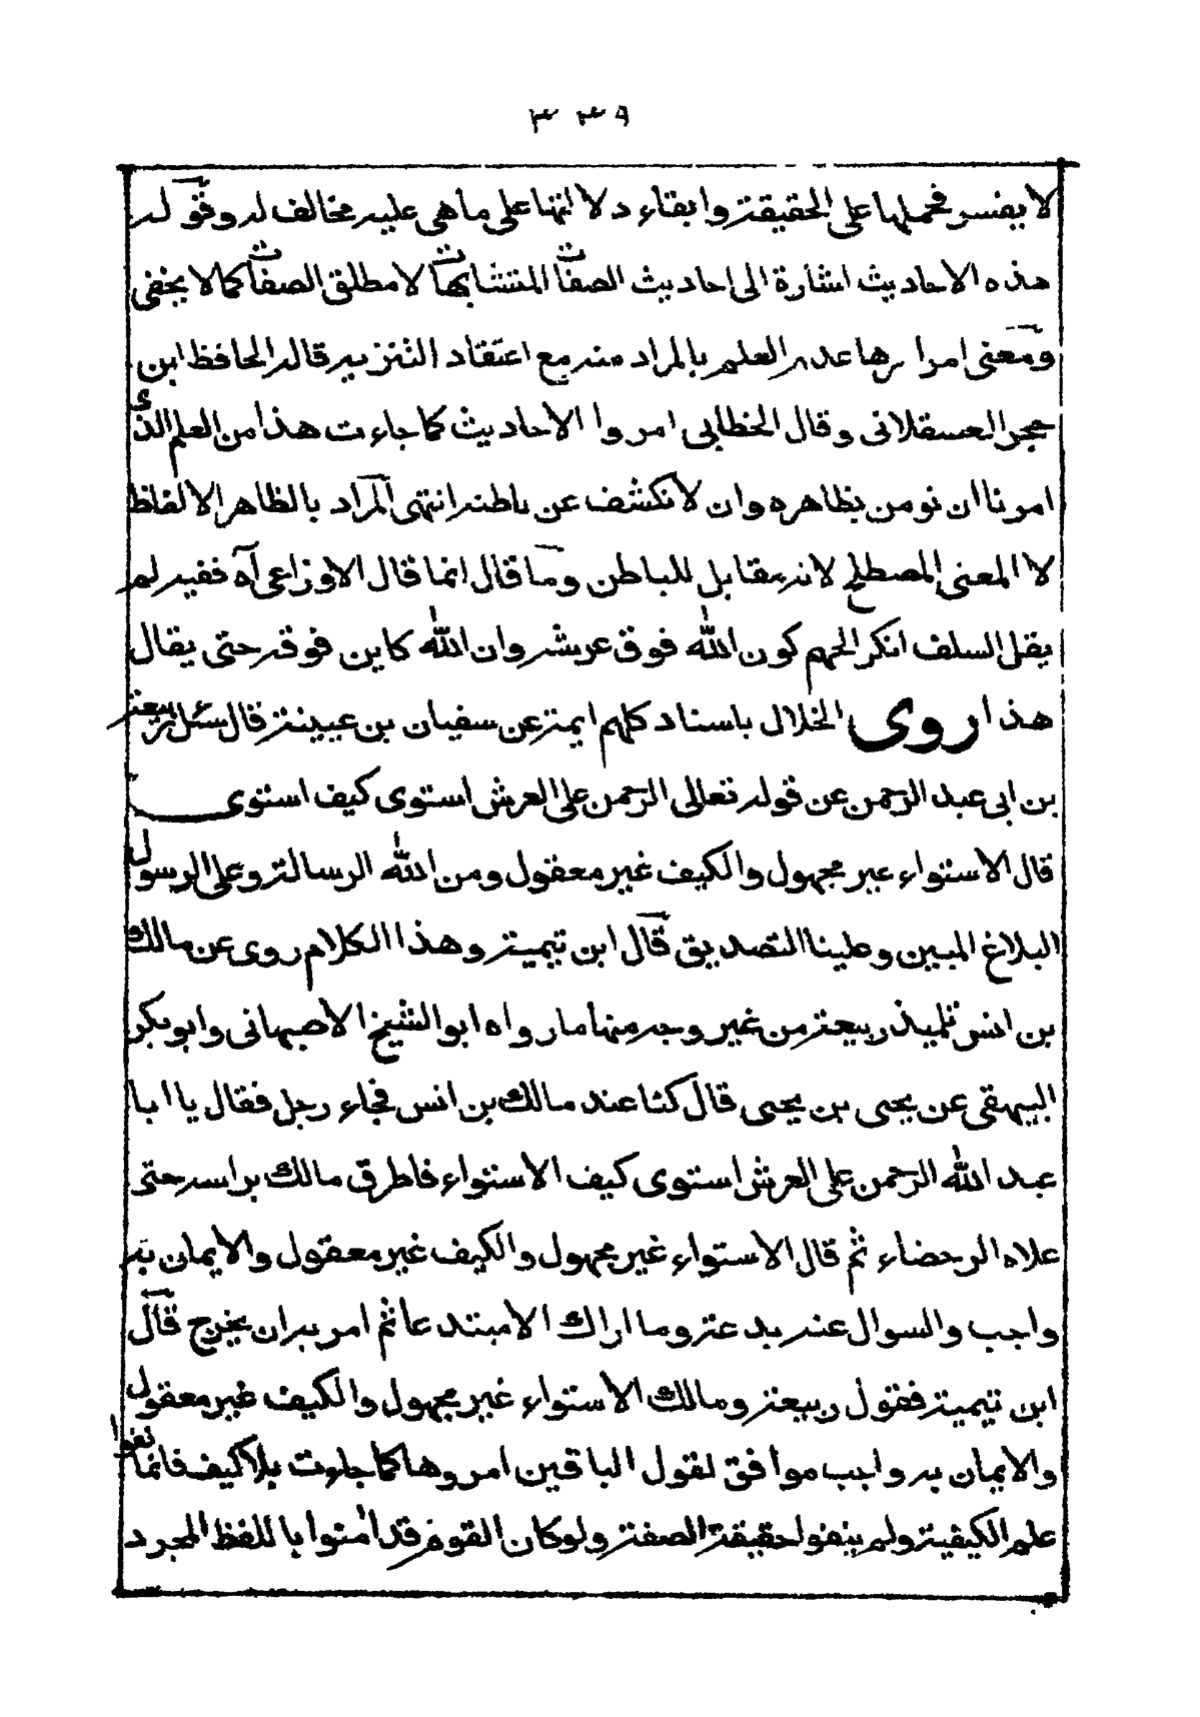 ٣٣٩
لا يفسر فحملها على الحقيقة وابقاء دلالتها على ما هى عليه مخالف له وقوله
هذه الاحاديث اشارة الى احاديث الصفات المتشابهات لا مطلق الصفات كما لا يخفى
ومعنى امرارها عدم العلم بالمراد منه مع اعتقاد التنزيه قاله الحافظ ابن
حجر العسقلانى وقال الخطابى امروا الاحاديث كما جاءت هذا من العلم الذى
امرنا ان نومن بظاهره وان لا نكشف عن باطنه انتهى المراد بالظاهر الالفاظ
لا المعنى المصطلح لانه مقابل للباطن وما قال انما قال الاوزاعى آه ففيه لم
يقل السلف انكر الجهم كون الله فوق عرشه وان الله كاين فوقه حتى يقال
هذا روى الخلال باسناد كلهم ايمة عن سفيان بن عيينة قال سئل ربيعة
بن ابى عبد الرحمن عن قوله تعالى الرحمن على العرش استوى كيف استوى
قال الاستواء غير مجهول والكيف غير معقول ومن الله الرسالة وعلى الرسول
البلاغ المبين وعلينا التصديق قال ابن تيمية وهذا الكلام روى عن مالك
بن انس تلميذ ربيعة من غير وجه منها ما رواه ابو الشيخ الاصبهانى وابو بكر
البيهقى عن يحيى بن يحيى قال كنا عند مالك بن انس فجاء رجل فقال يا ابا
عبد الله الرحمن على العرش استوى كيف الاستواء فاطرق مالك براسه حتى
علاه الرحضاء ثم قال الاستواء غير مجهول والكيف غير معقول والايمان به
واجب والسوال عنه بدعة وما اراك الا مبتدعا ثم امر به ان يخرج قال
ابن تيمية فقول ربيعة ومالك الاستواء غير مجهول والكيف غير معقول
والايمان به واجب موافق لقول الباقين امروها كما جاءت بلا كيف فانما نفوا
علم الكيفية ولم ينفوا حقيقة الصفة ولو كان القوم قد امنوا باللفظ المجرد